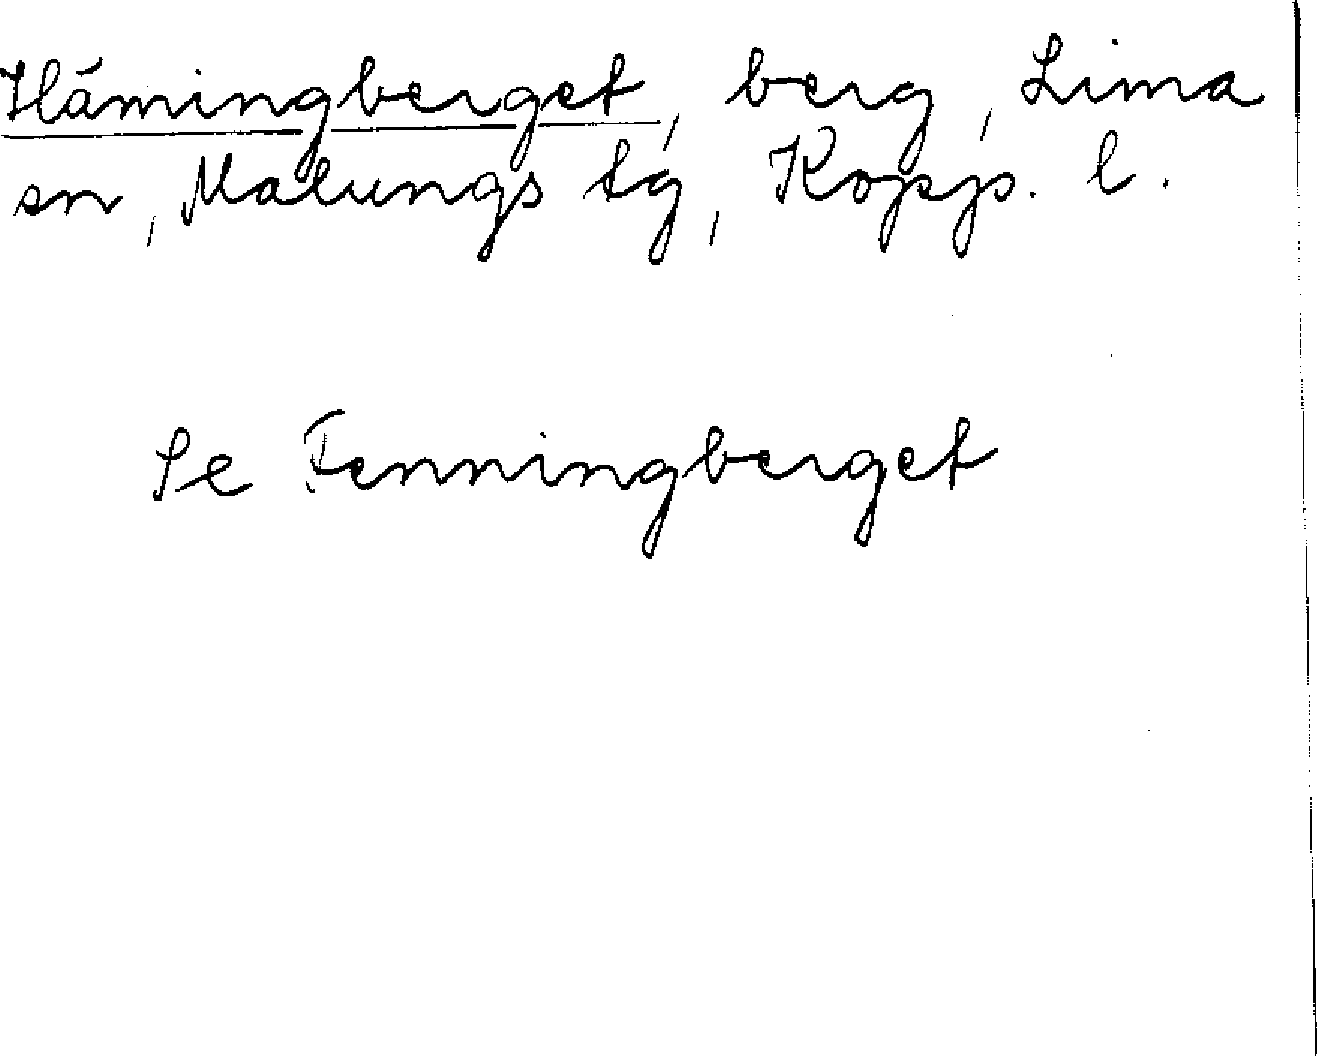 Hämingberget, berg, Lima
sn, Malungs tg, Kopp. l.
Se Fenningberget